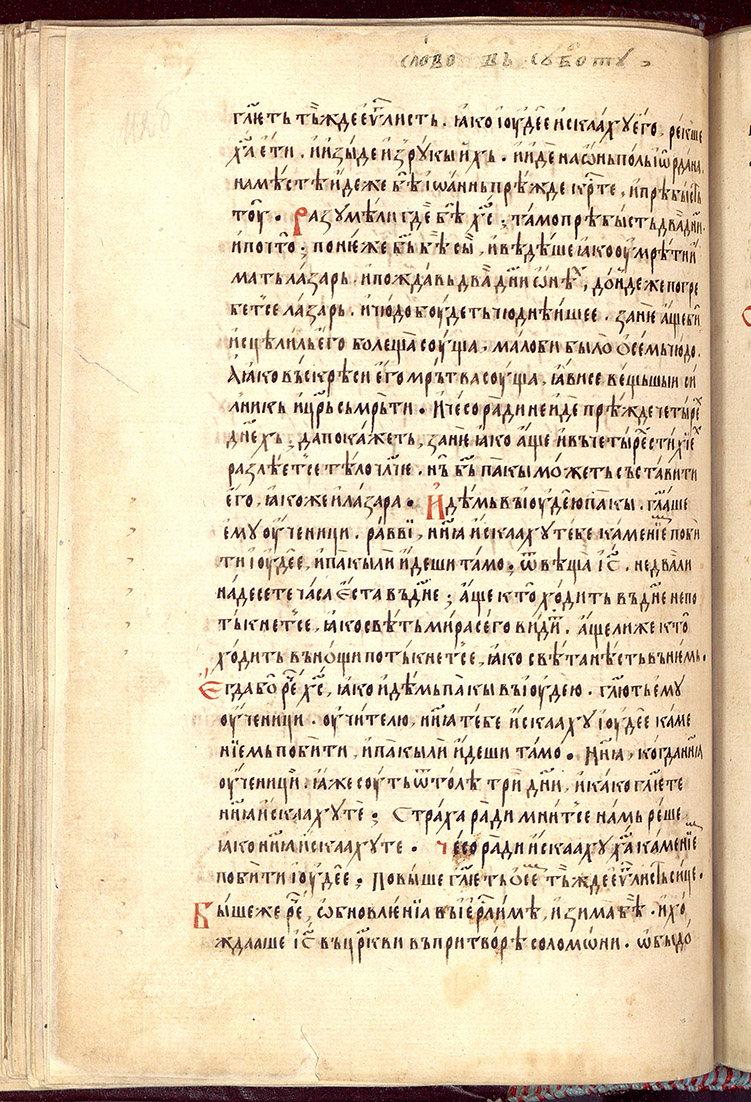 слово въ суботу
гл҃еть тъжде еѵⷢ҇листь. ꙗко їоуде́е и҆скаахꙋ его̀. ре́кше
хⷭ҇а е҆́ти. и҆ и҆зы́де и҆з рꙋкы и҆́хь. и҆ и҆́де на ѡ҆́нь поль їѡ҆рдана,
на мѣ́стѣ и҆де́же бѣ̀ їѡа́ннь прѣ́жде крⷭ҇те, и҆ прѣбы́сть
тоу̀. Разꙋмѣ́ли гдѐ бѣ̀ хⷭ҇ь; та́мо прѣбы́сть два̀ дн҃и.
и҆ почто̀; поне́же бг҃ь бѣ̀ сы̀, и҆ вѣ́дѣше ꙗко оу҆мрѣ́ти и҆́
мать ла́зарь. и҆ пожда́вь два̀ дн҃и ѡ҆нѣⷯ, до́ндеже погре
бет се ла́зарь. и҆ чю́до боу́деть чюднѣ́ишее. занѐ а҆́ще бы̀
и҆сцѣли́ль его̀ болеща соу́ща. мало би было ѻ҆се́мь чю́до.
А҆ ꙗко въскрѣ́си его̀ мр҃тва соу́ща, ꙗ҆ви се ве́щьшыи си́
лникь и҆ цр҃ь съмрⷺти. И҆ чесо ра́ди не и҆́де прѣ́жде четы́реⷯ
дн҃ехь; да пока́жеть, занѐ ꙗко а҆́ще и҆ въ четы́реⷯ стихїеⷯ
разлѣ́ет се тѣ́ло чл҃че. нъ̀ бг҃ь па́кы мо́жеть съста́вити
его̀. ꙗкоже и҆ ла́зара. И҆́дѣмь въ їоуде́ю па́кы. гл҃аше
е҆мꙋ оу҆ченици. равві̀, нн҃ꙗ и҆скаахꙋ тебе каме́нїещ поби
ти їоуде́е, и҆ па́кы ли и҆́деши та́мо; ѿвѣща їс҃. не два́ ли
на́десете часа е҆́ста въ дн҃е; а҆́ще кто̀ хо́дить въ дн҃е не по
ты́кнет се, ꙗко свѣ́ть ми́ра сего ви́ди. а҆́ще ли же кто̀
хо́дить въ но́щи поты́кнет се, ꙗко свѣ́та нѣ́сть въ немь.
Е҆гда бо̀ реⷱ҇ хⷭ҇ь, ꙗко и҆́дѣмь па́кы въ їоуде́ю. гл҃ють е҆мꙋ
оу҆ченици. оу҆чителю, нн҃ꙗ тебе и҆скаахꙋ їоуде́е каме
нїемь поби́ти, и҆ па́кы ли и҆́деши та́мо. Нн҃ꙗ, когда нн҃ꙗ
оу҆ченици. ꙗже соу́ть ѿто́лѣ трѝ дн҃и, и҆ ка́ко гл҃ете
нн҃ꙗ и҆скаахꙋ тѐ; Стра́ха ра́ди мнит се намь ре́ше
ꙗко нн҃ꙗ и҆скаахꙋ те. Че́со ра́ди и҆скаахꙋ хⷭ҇а каме́нїещ
поби́ти їоуде́е; Повыше гл҃еть ѻ҆ се́мь тъ́жде еѵⷢ҇листь си́це.
Бы́ше же реⷱ҇, ѡ҆бновле́нїа въ їерⷭ҇лимѣ, и҆ зима бѣ̀. и҆ хо́
ждааше їс҃ въ цр҃кви въ притво́рѣ соломѡ́ни. ѡ҆быдо́